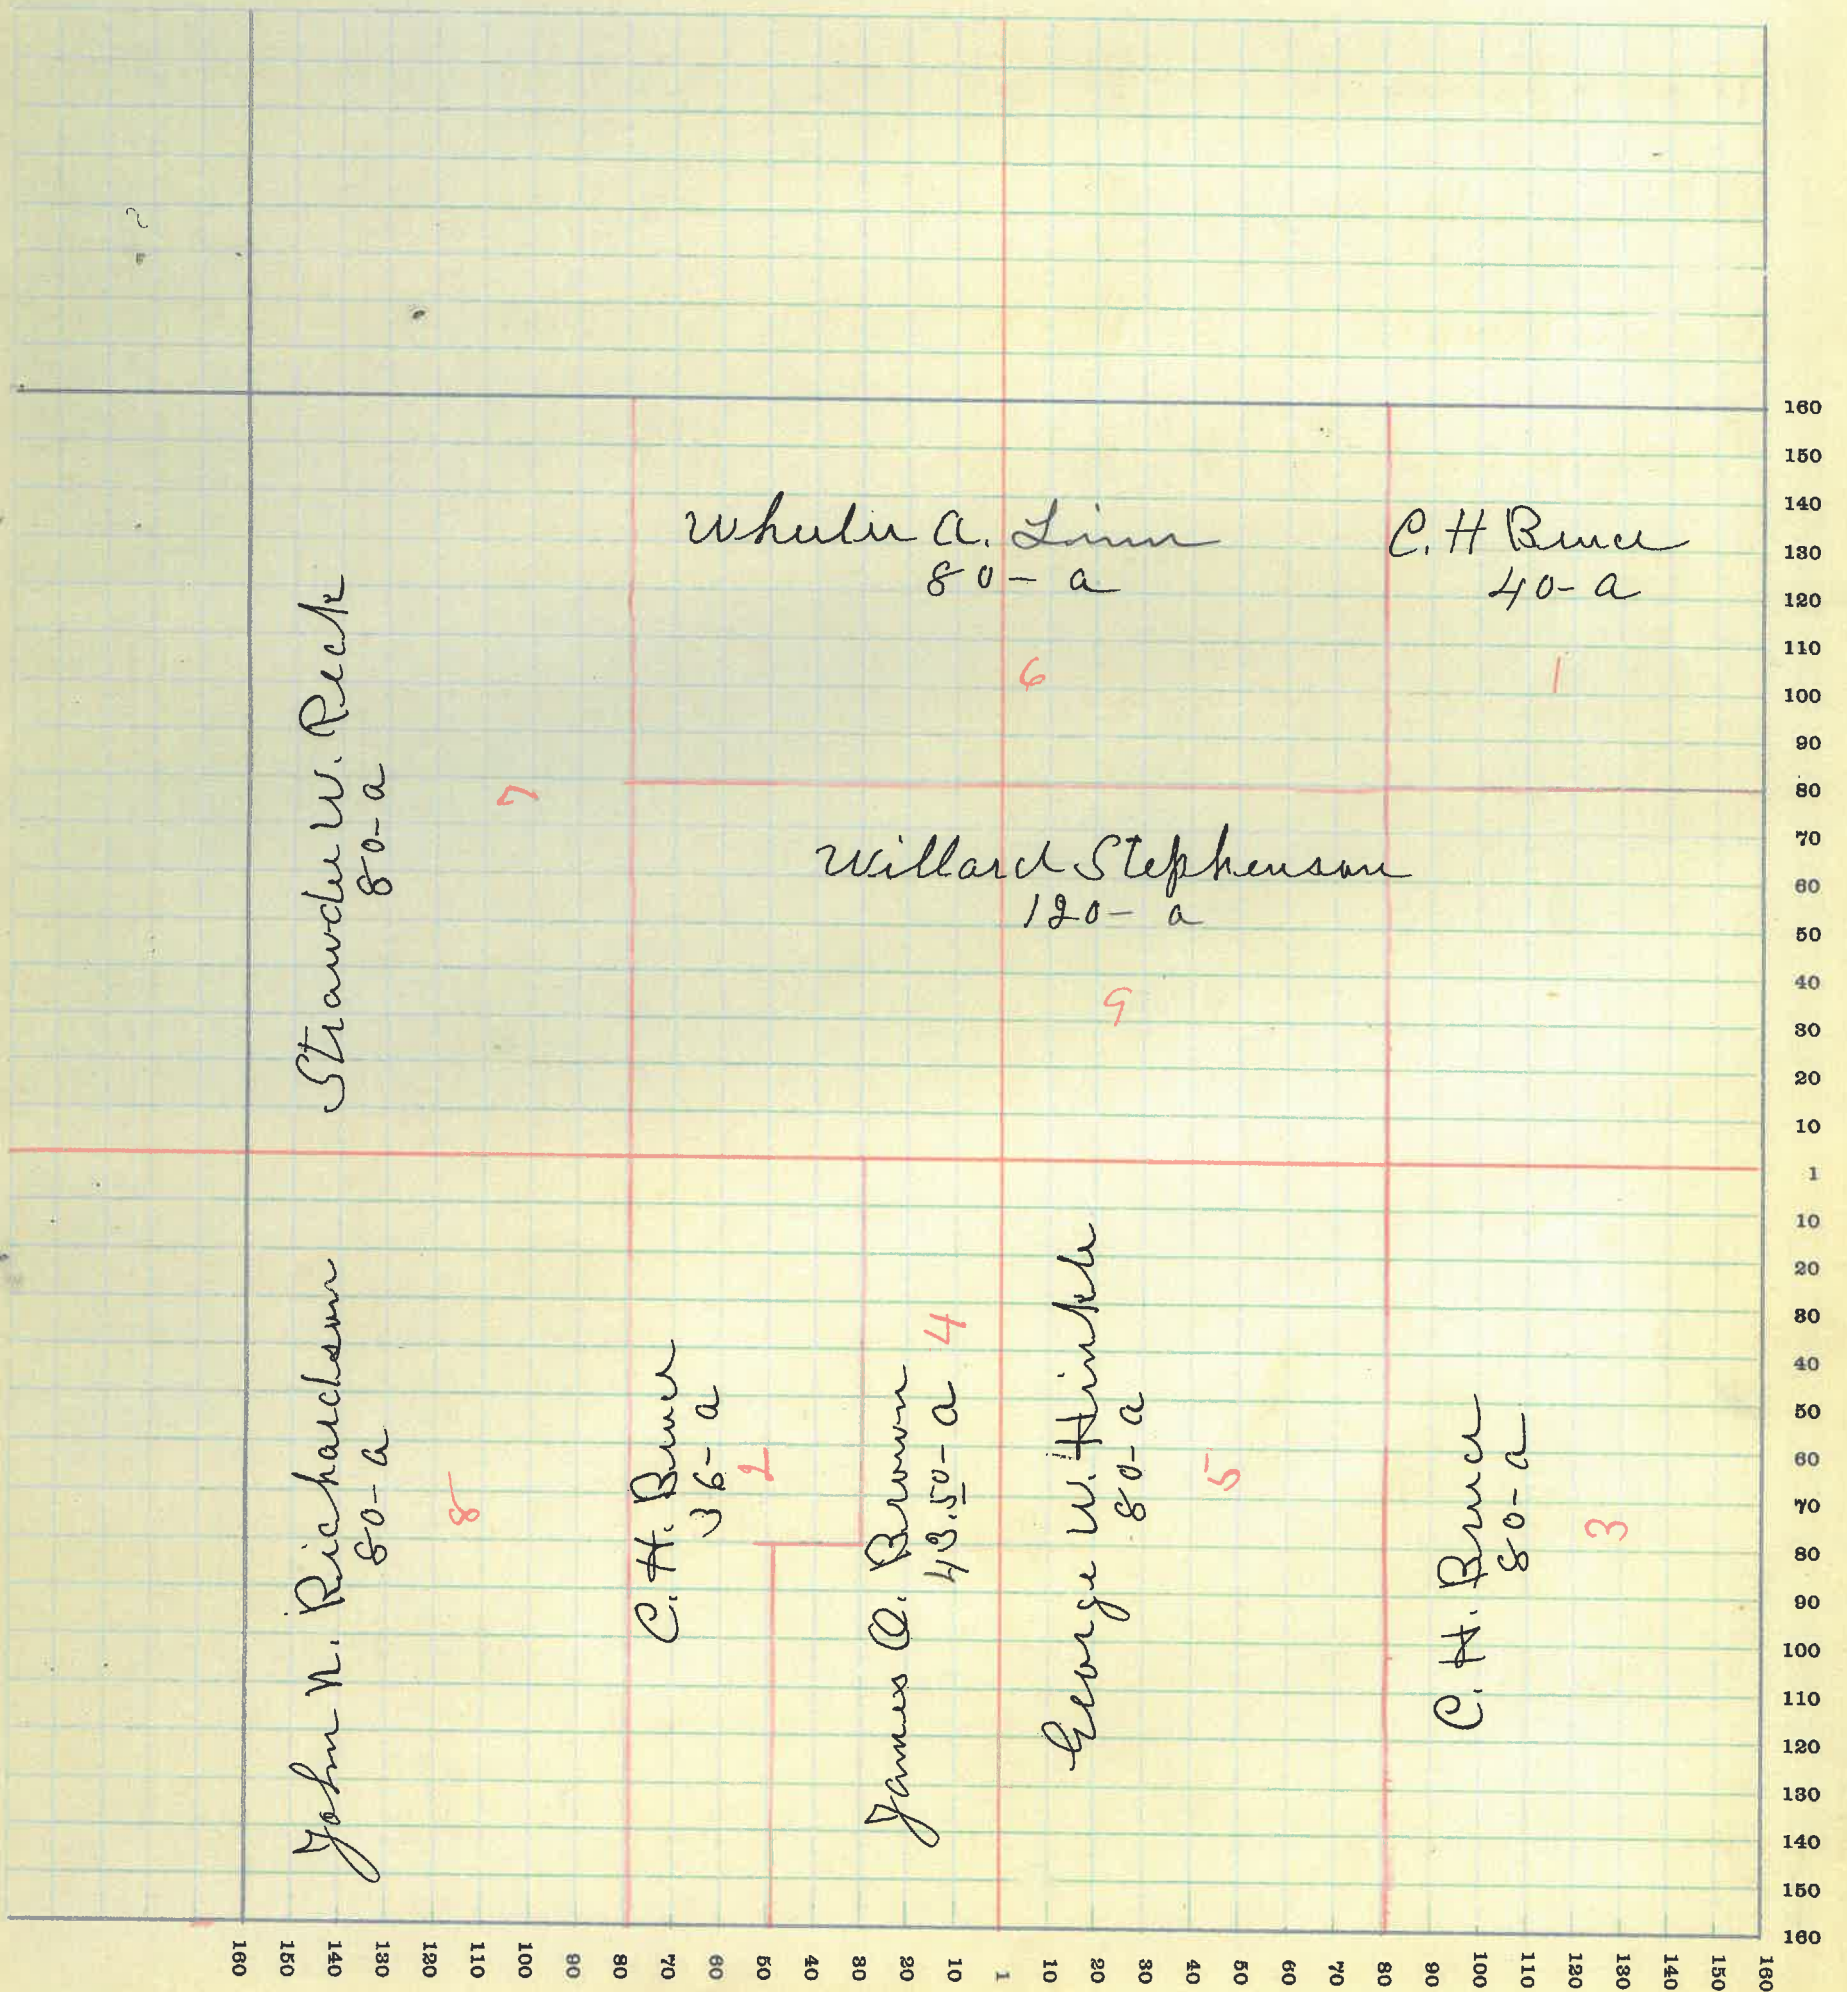 Wheeler A. Linn
80-a
6
C. H Bruce
40-a
1
Strawder W. Peck
80-a
7
Willard Stephenson
120-a
9
John N. Richardson
80-a
8
C. H. Bruce
36-a
2
James A. Brown
43.50-a
4
George W. Hinkle
80-a
5
C. H. Bruce
80-a
3
160
150
140
130
120
110
100
90
80
70
60
50
40
30
20
10
1
10
20
30
40
50
60
70
80
90
100
110
120
130
140
150
160
160 150 140 130 120 110 100 90 80 70 60 50 40 30 20 10 1 10 20 30 40 50 60 70 80 90 100 110 120 130 140 150 160